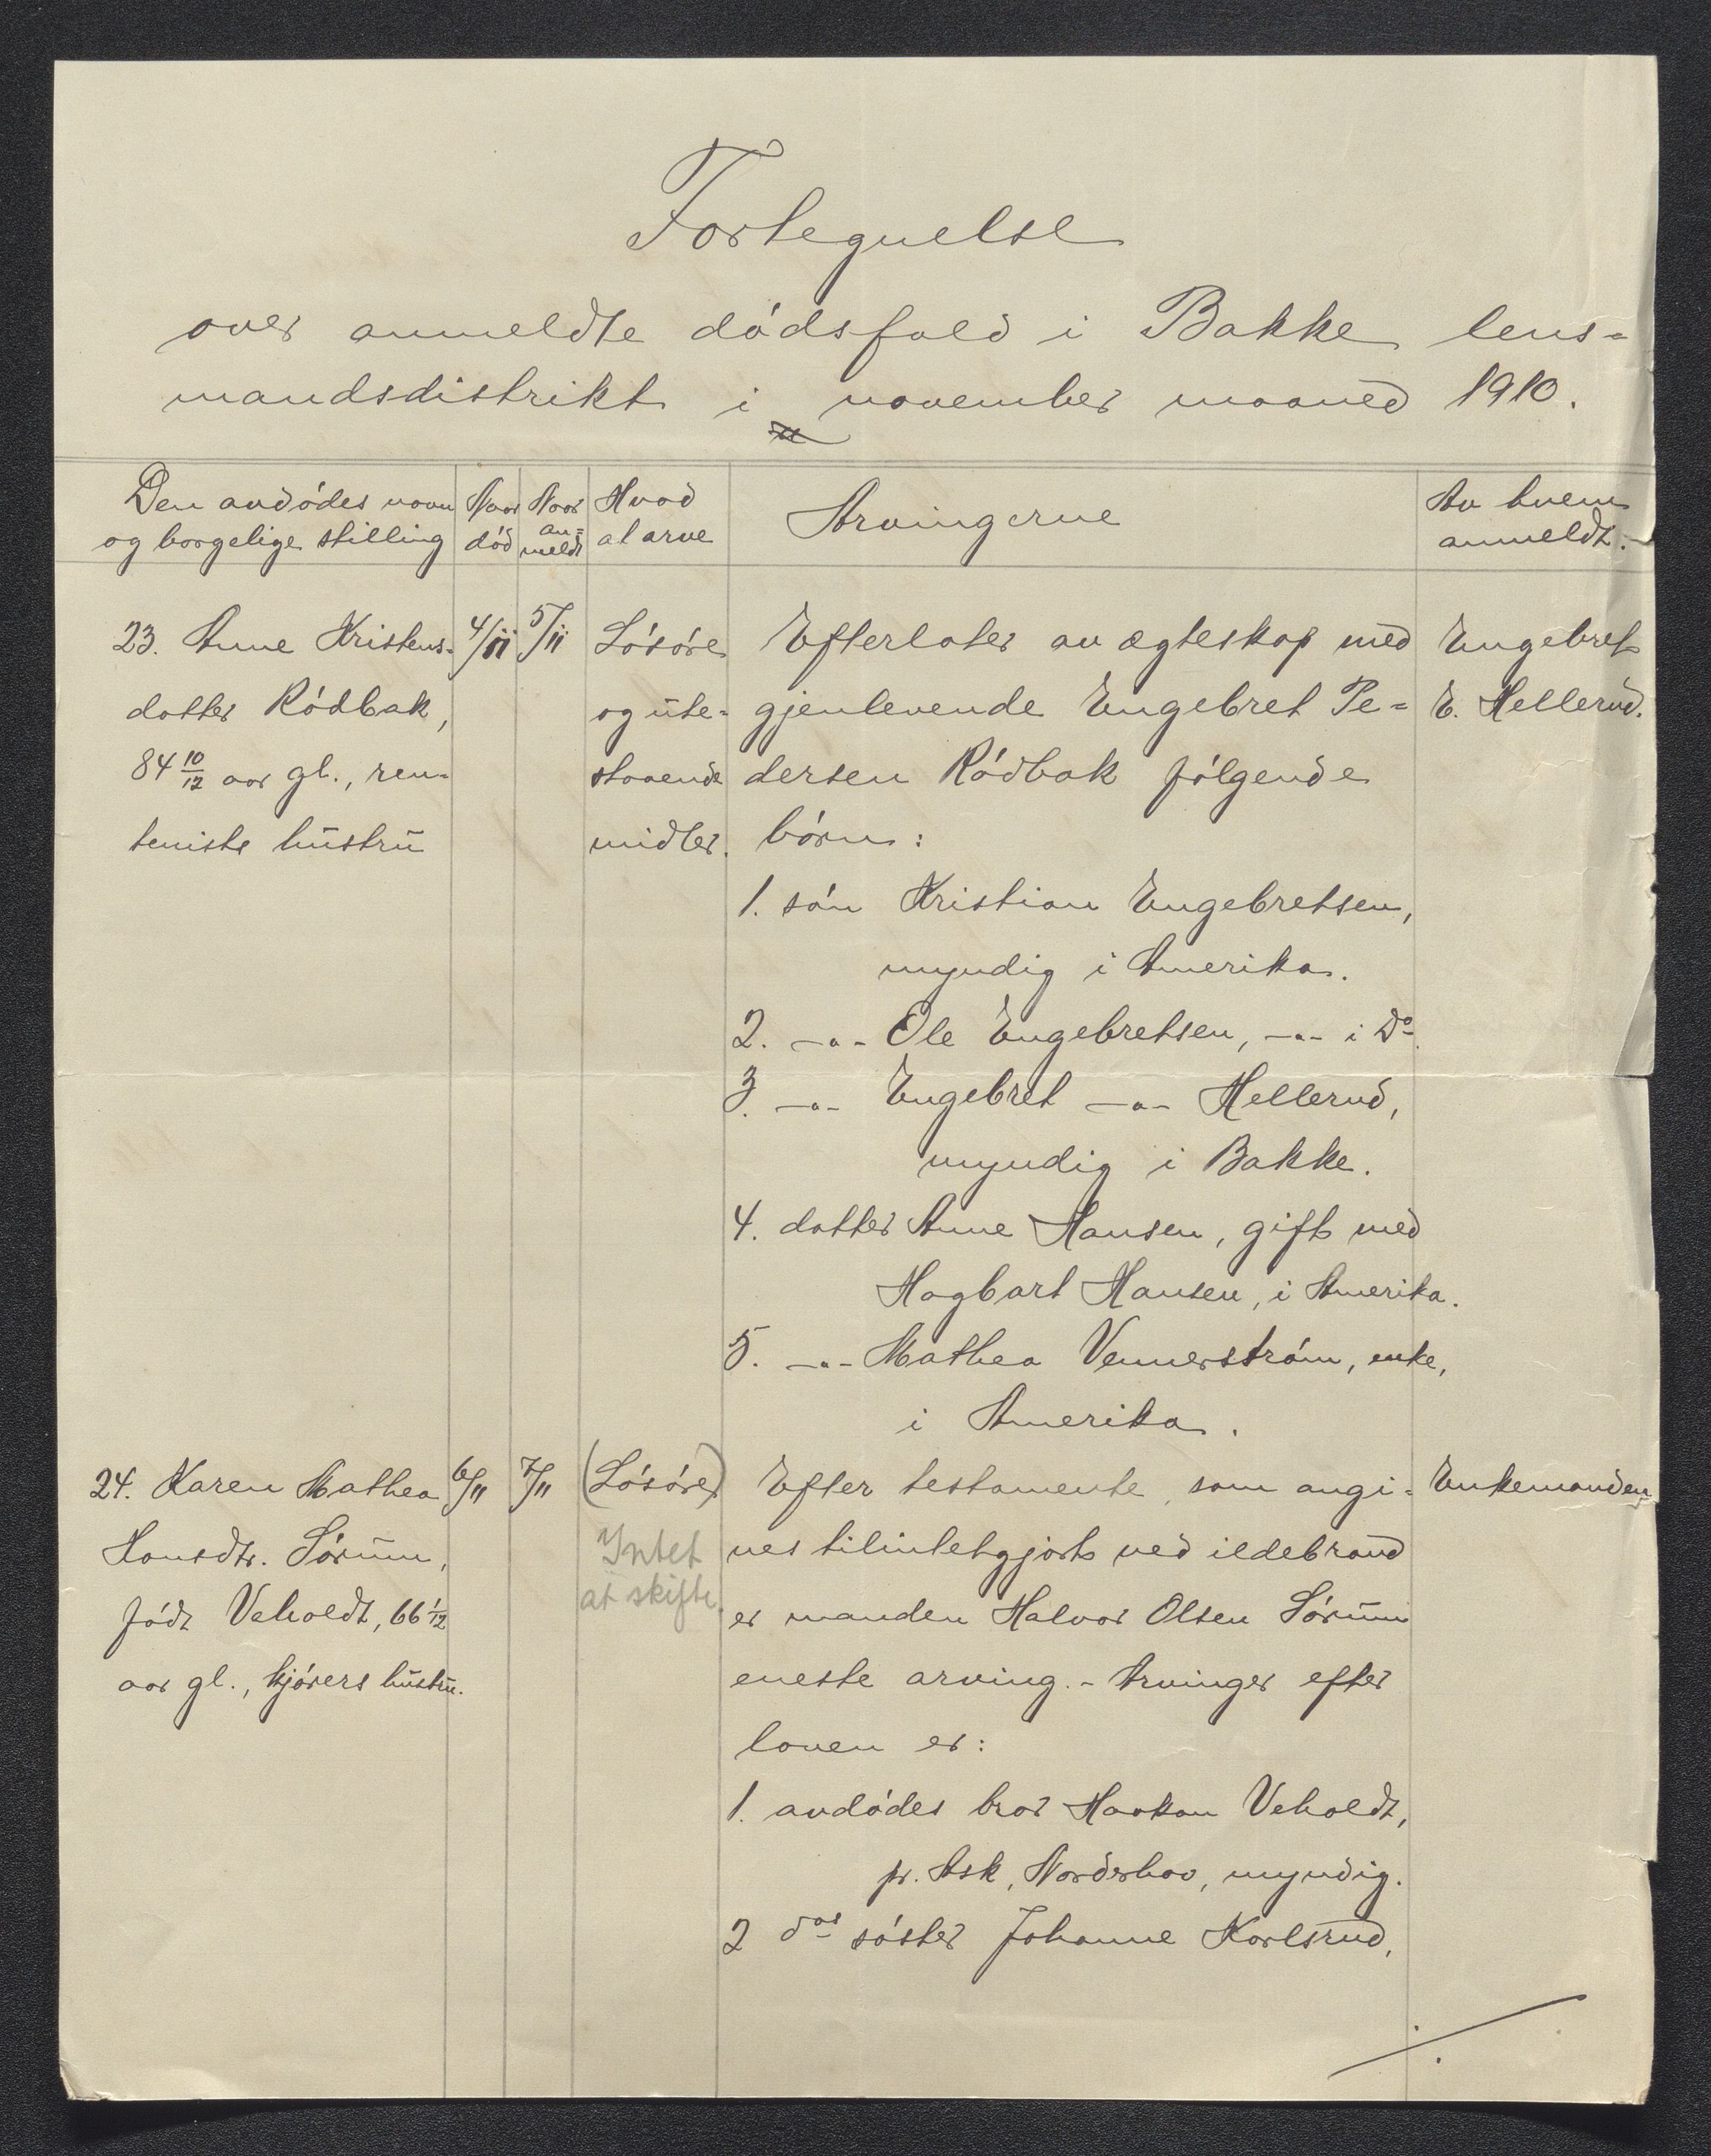 Fortegnelse
over anmeldte dødsfald i Bakke lens=
mandsdistrikt i november maaned 1910.
Den avdødes navn
og borgelige stilling
Naar
død
Naar
an=
meldt
Hvad
at arve
Arvingerne
Av hvem
anmeldt.
23. Anne Kristens-
datter Rødbak,
84 10/12 aar gl., ren-
teniste hustru
4/11
5/11
Løsøre
og ute-
staaende
midler.
Efterlater av ægteskap med
gjenlevende Engebret Pe=
dersen Rødbak følgende
børn:
1. søn Kristian Engebretsen,
myndig i Amerika.
2. -"- Ole Engebretsen, -"- i Do.
3. -"- Engebret -"- Hellerud,
myndig i Bakke.
4. datter Anne Hansen, gift med
Hagbart Hansen, i Amerika.
5. -"- Mathea Vennerstrøm, enke,
i Amerika.
Engebret
E. Hellerud.
24. Karen Mathea
Hansdtr. Sørum,
født Veholdt, 66 1/12
aar gl., kjørers hustru.
6/11
7/11
(Løsøre)
Intet
at skifte.
Efter testamente, som angi=
ves tilintetgjort ved ildebrand
er manden Halvor Olsen Sørum
eneste arving. - Arvinger efter
loven er:
1. avdødes bror Haakon Veholdt,
pr. Ask, Norderhov, myndig.
2 dos søster Johanne Karlsrud,
Enkemanden
./.